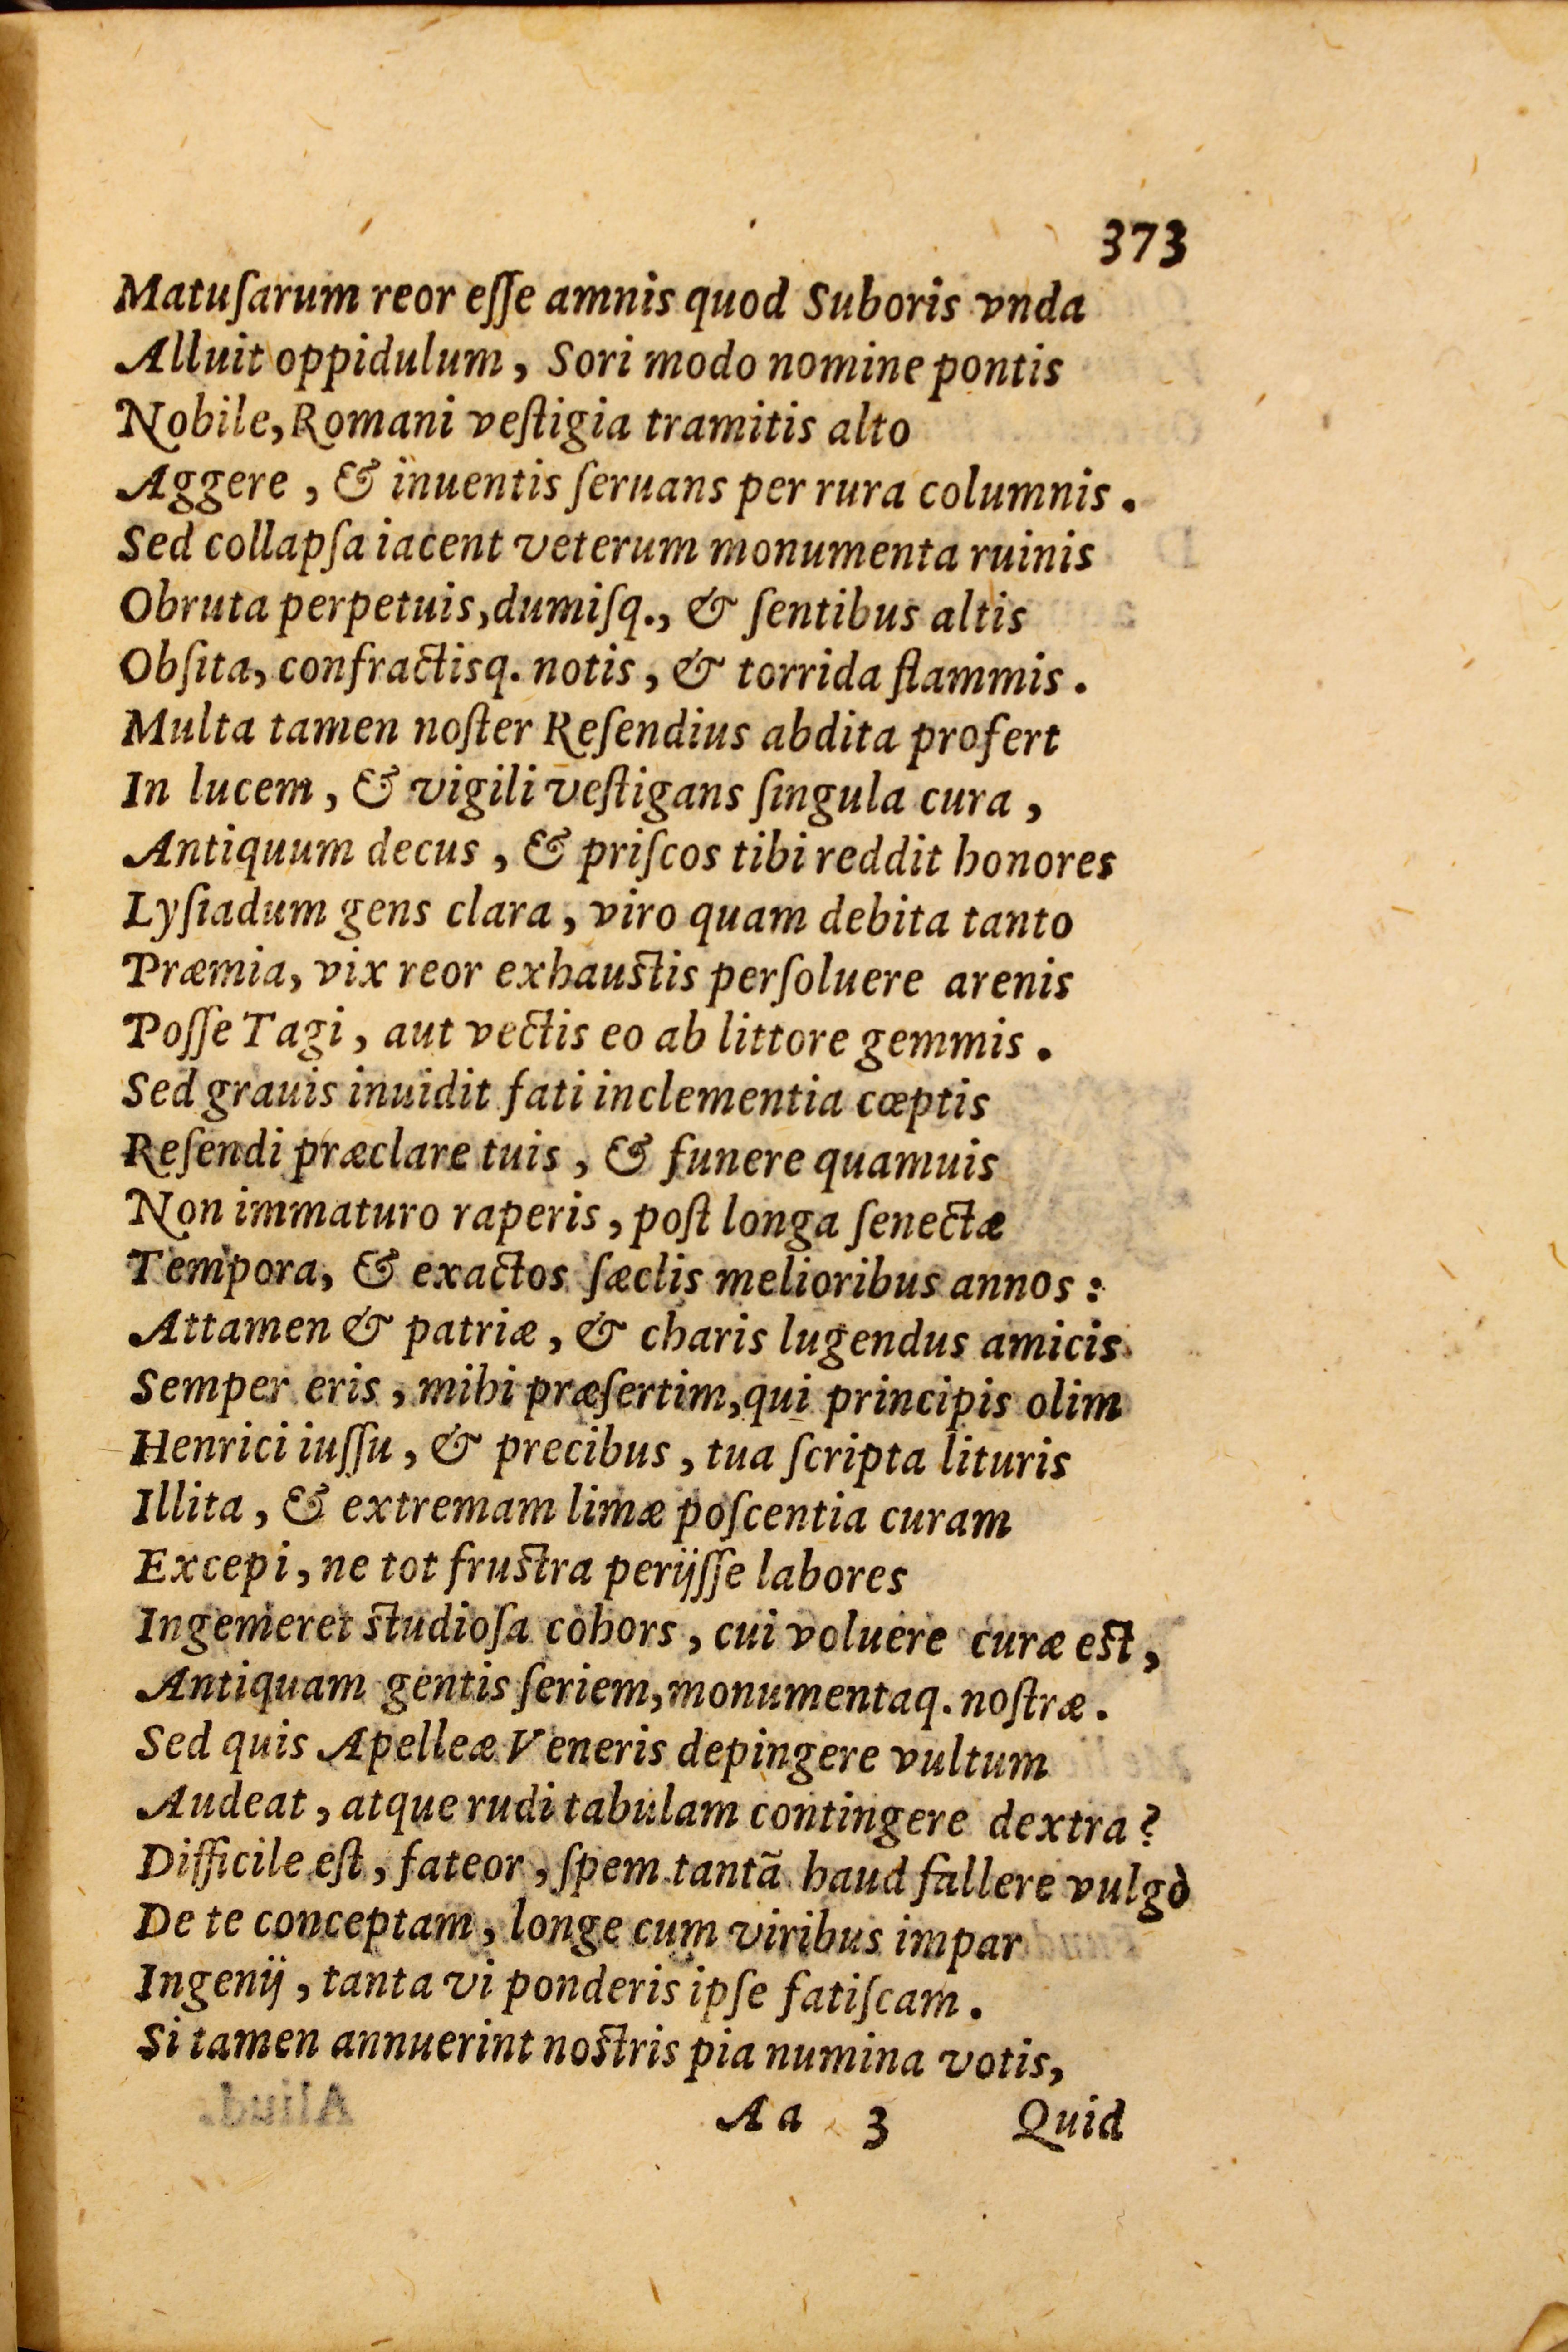 373
Matuſarum reor eſſe amnis quod Suboris vnda
Alluit oppidulum, Sori modo nomine pontis
Nobile, Romani veſtigia tramitis alto
Aggere, & inuentis ſeruans per rura columnis.
Sed collapſa iacent veterum monumenta ruinis
Obruta perpetuis, dumiſq., & ſentibus altis
Obſita, confractisq. notis, & torrida flammis.
Multa tamen noſter Reſendius abdita profert
In lucem, & vigili veſtigans ſingula cura,
Antiquum decus, & priſcos tibi reddit honores
Lyſiadum gens clara, viro quam debita tanto
Præmia, vix reor exhaustis perſoluere arenis
Poſſe Tagi, aut vectis eo ab littore gemmis.
Sed grauis inuidit fati inclementia cœptis
Reſendi præclare tuis, & funere quamuis
Non immaturo raperis, poſt longa ſenectæ
Tempora, & exactos ſæclis melioribus annos:
Attamen & patriæ, & charis lugendus amicis
Semper eris, mihi præſertim, qui principis olim
Henrici iuſſu, & precibus, tua ſcripta lituris
Illita, & extremam limæ poſcentia curam
Excepi, ne tot frustra perijſſe labores
Ingemeret studioſa cohors, cui voluere curæ est,
Antiquam gentis ſeriem, monumentaq. noſtræ.
Sed quis Apelleæ Veneris depingere vultum
Audeat, atque rudi tabulam contingere dextra?
Difficile eſt, fateor, ſpem tantã haud fallere vulgò
De te conceptam, longe cum viribus impar
Ingenij, tanta vi ponderis ipſe fatiſcam.
Si tamen annuerint nostris pia numina votis,
Aa 3 Quid